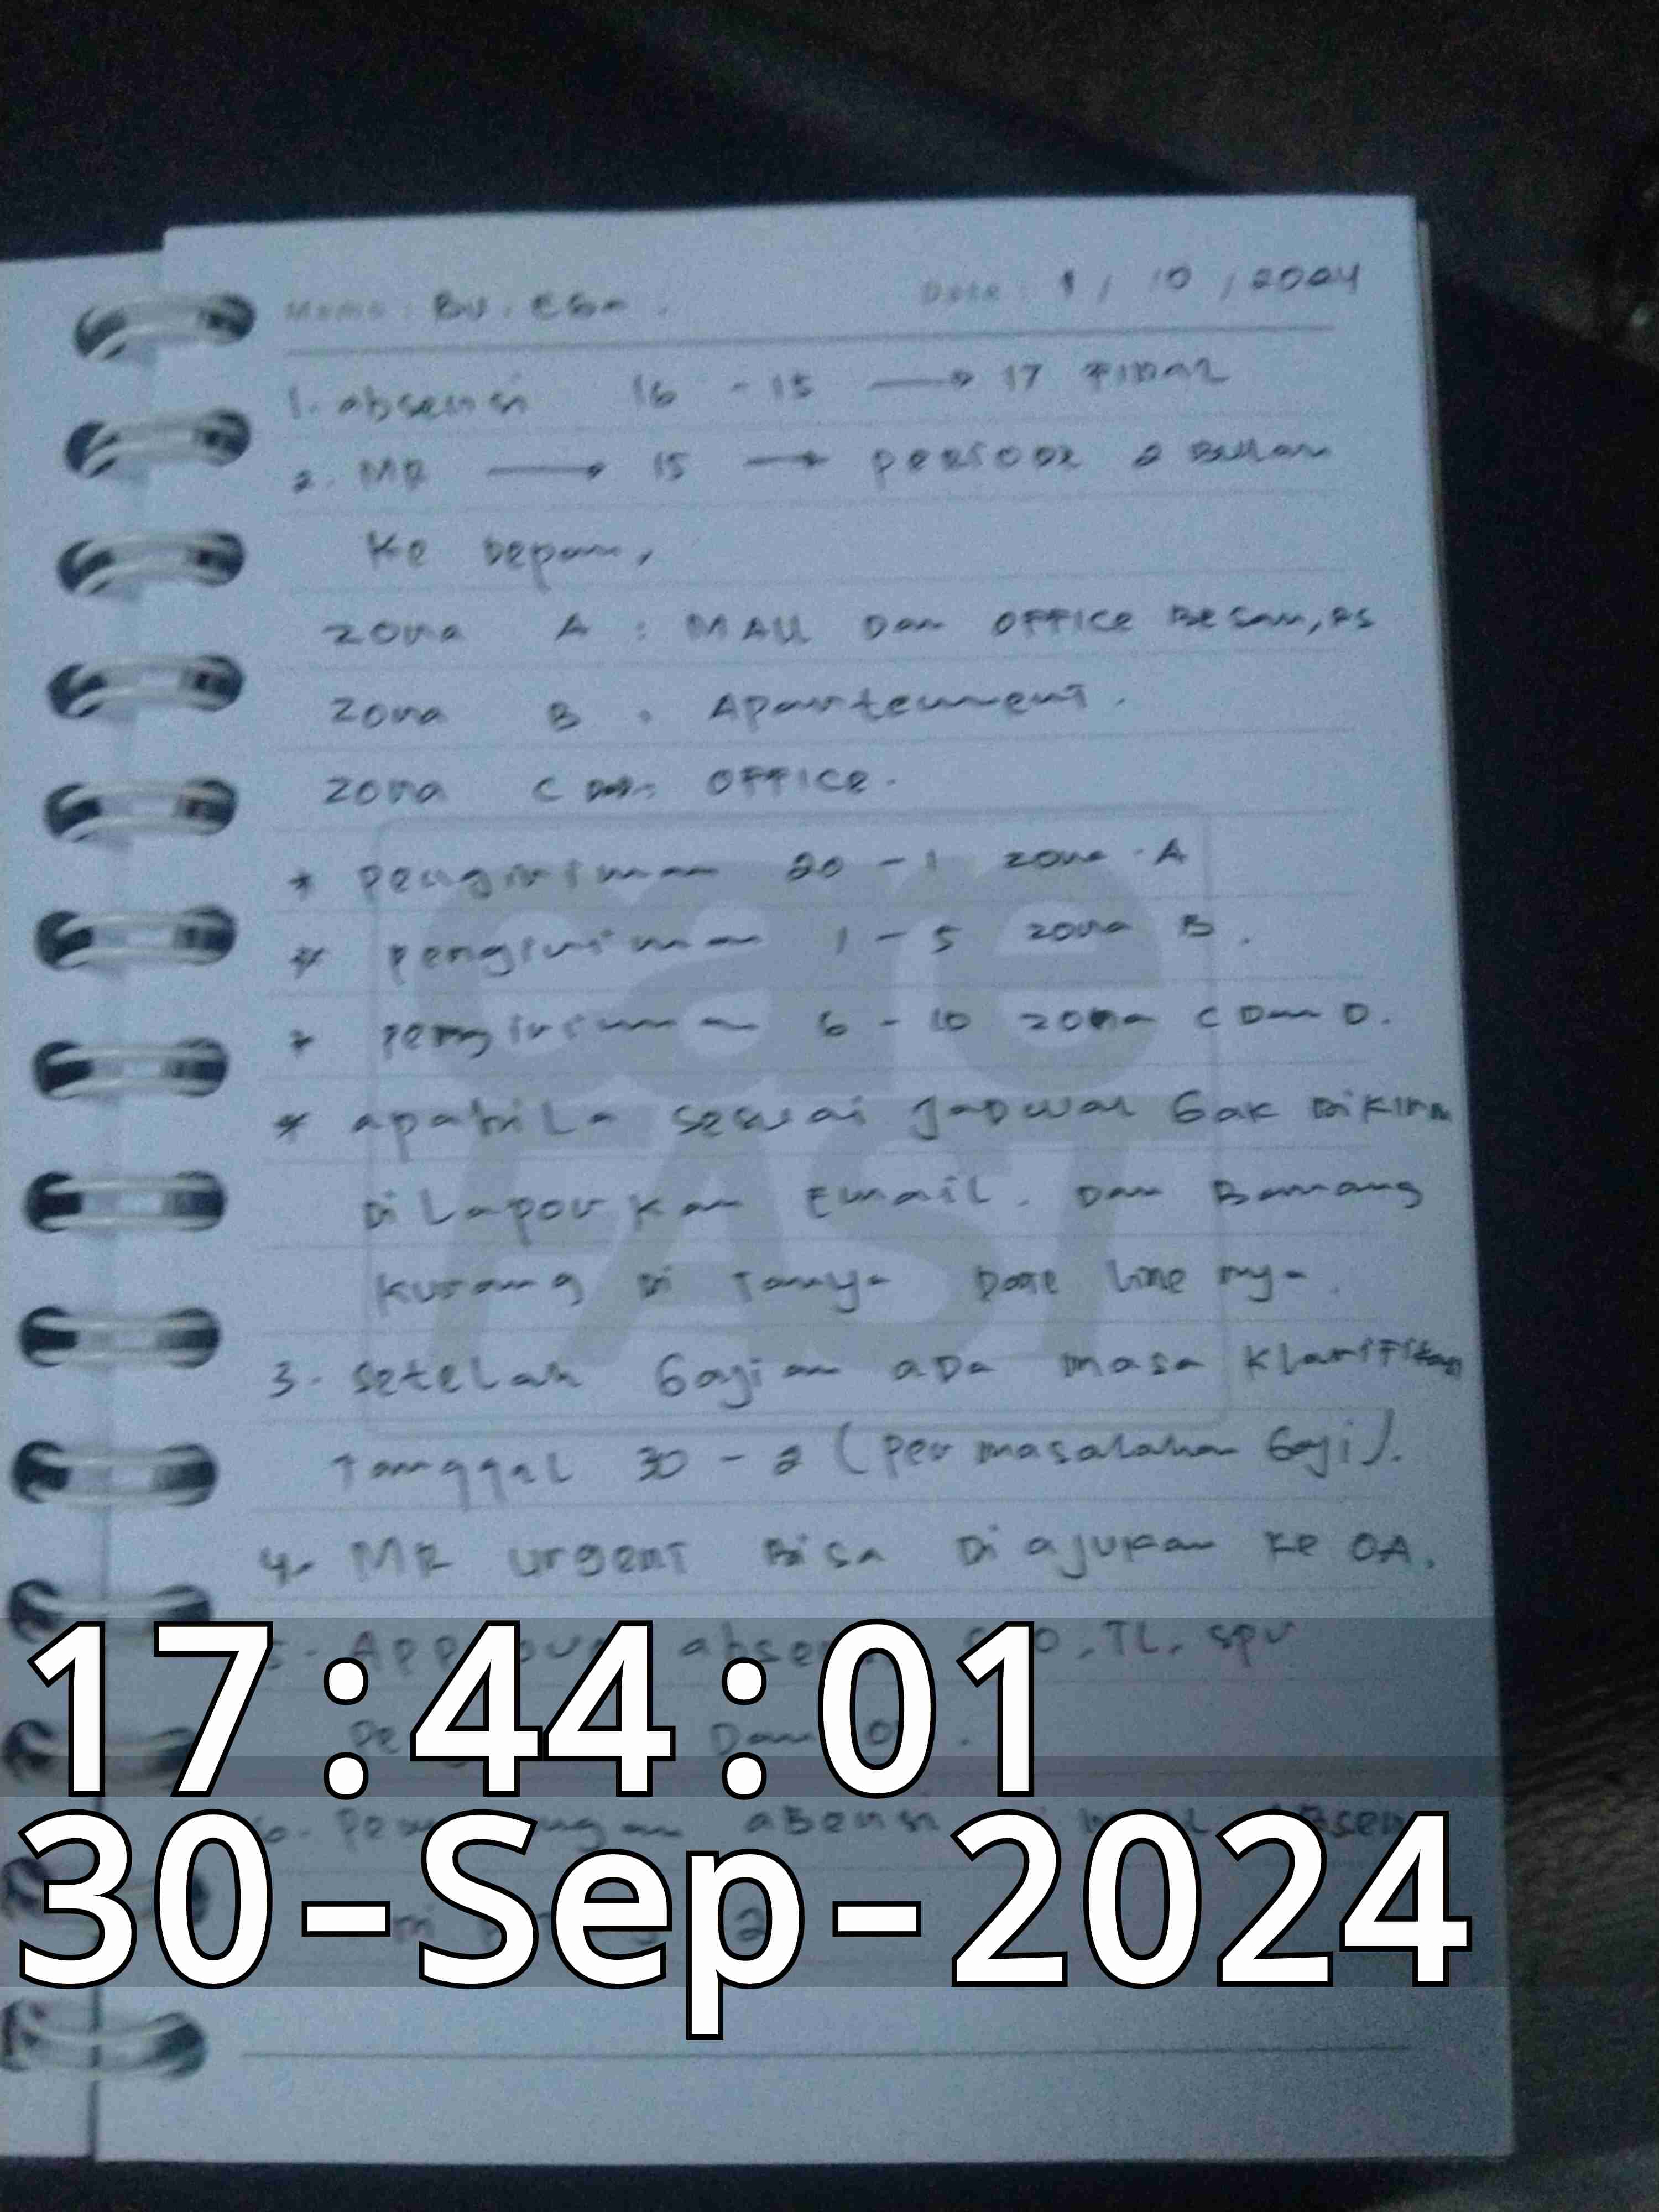 Memo : Bu. Date : 1 / 10 / 2024
1. absensi 16 - 15 → 17 FINAL
2. MR → 15 → PERIODE 2 Bulan
Ke Depan,
Zona A : MALL Dan OFFICE Besar, RS
Zona B : Apartement.
Zona C OFFICE.
* Pengiriman 20 - 1 Zona A
* Pengiriman 1 - 5 Zona B.
* Pengiriman 6 - 10 Zona C Dan D.
* apabila sesuai Jadwal Gak Dikirim
Di Laporkan Email. Dan Barang
Kurang Di Tanya Date line nya.
3. Setelah Gajian ada masa Klarifikasi
Tanggal 30 - 2 (Permasalahan Gaji).
4. MR urgent Bisa Di ajukan Ke OA.
TL, SPV
17:44:01
Dan
absensi
30-Sep-2024
care
FAST